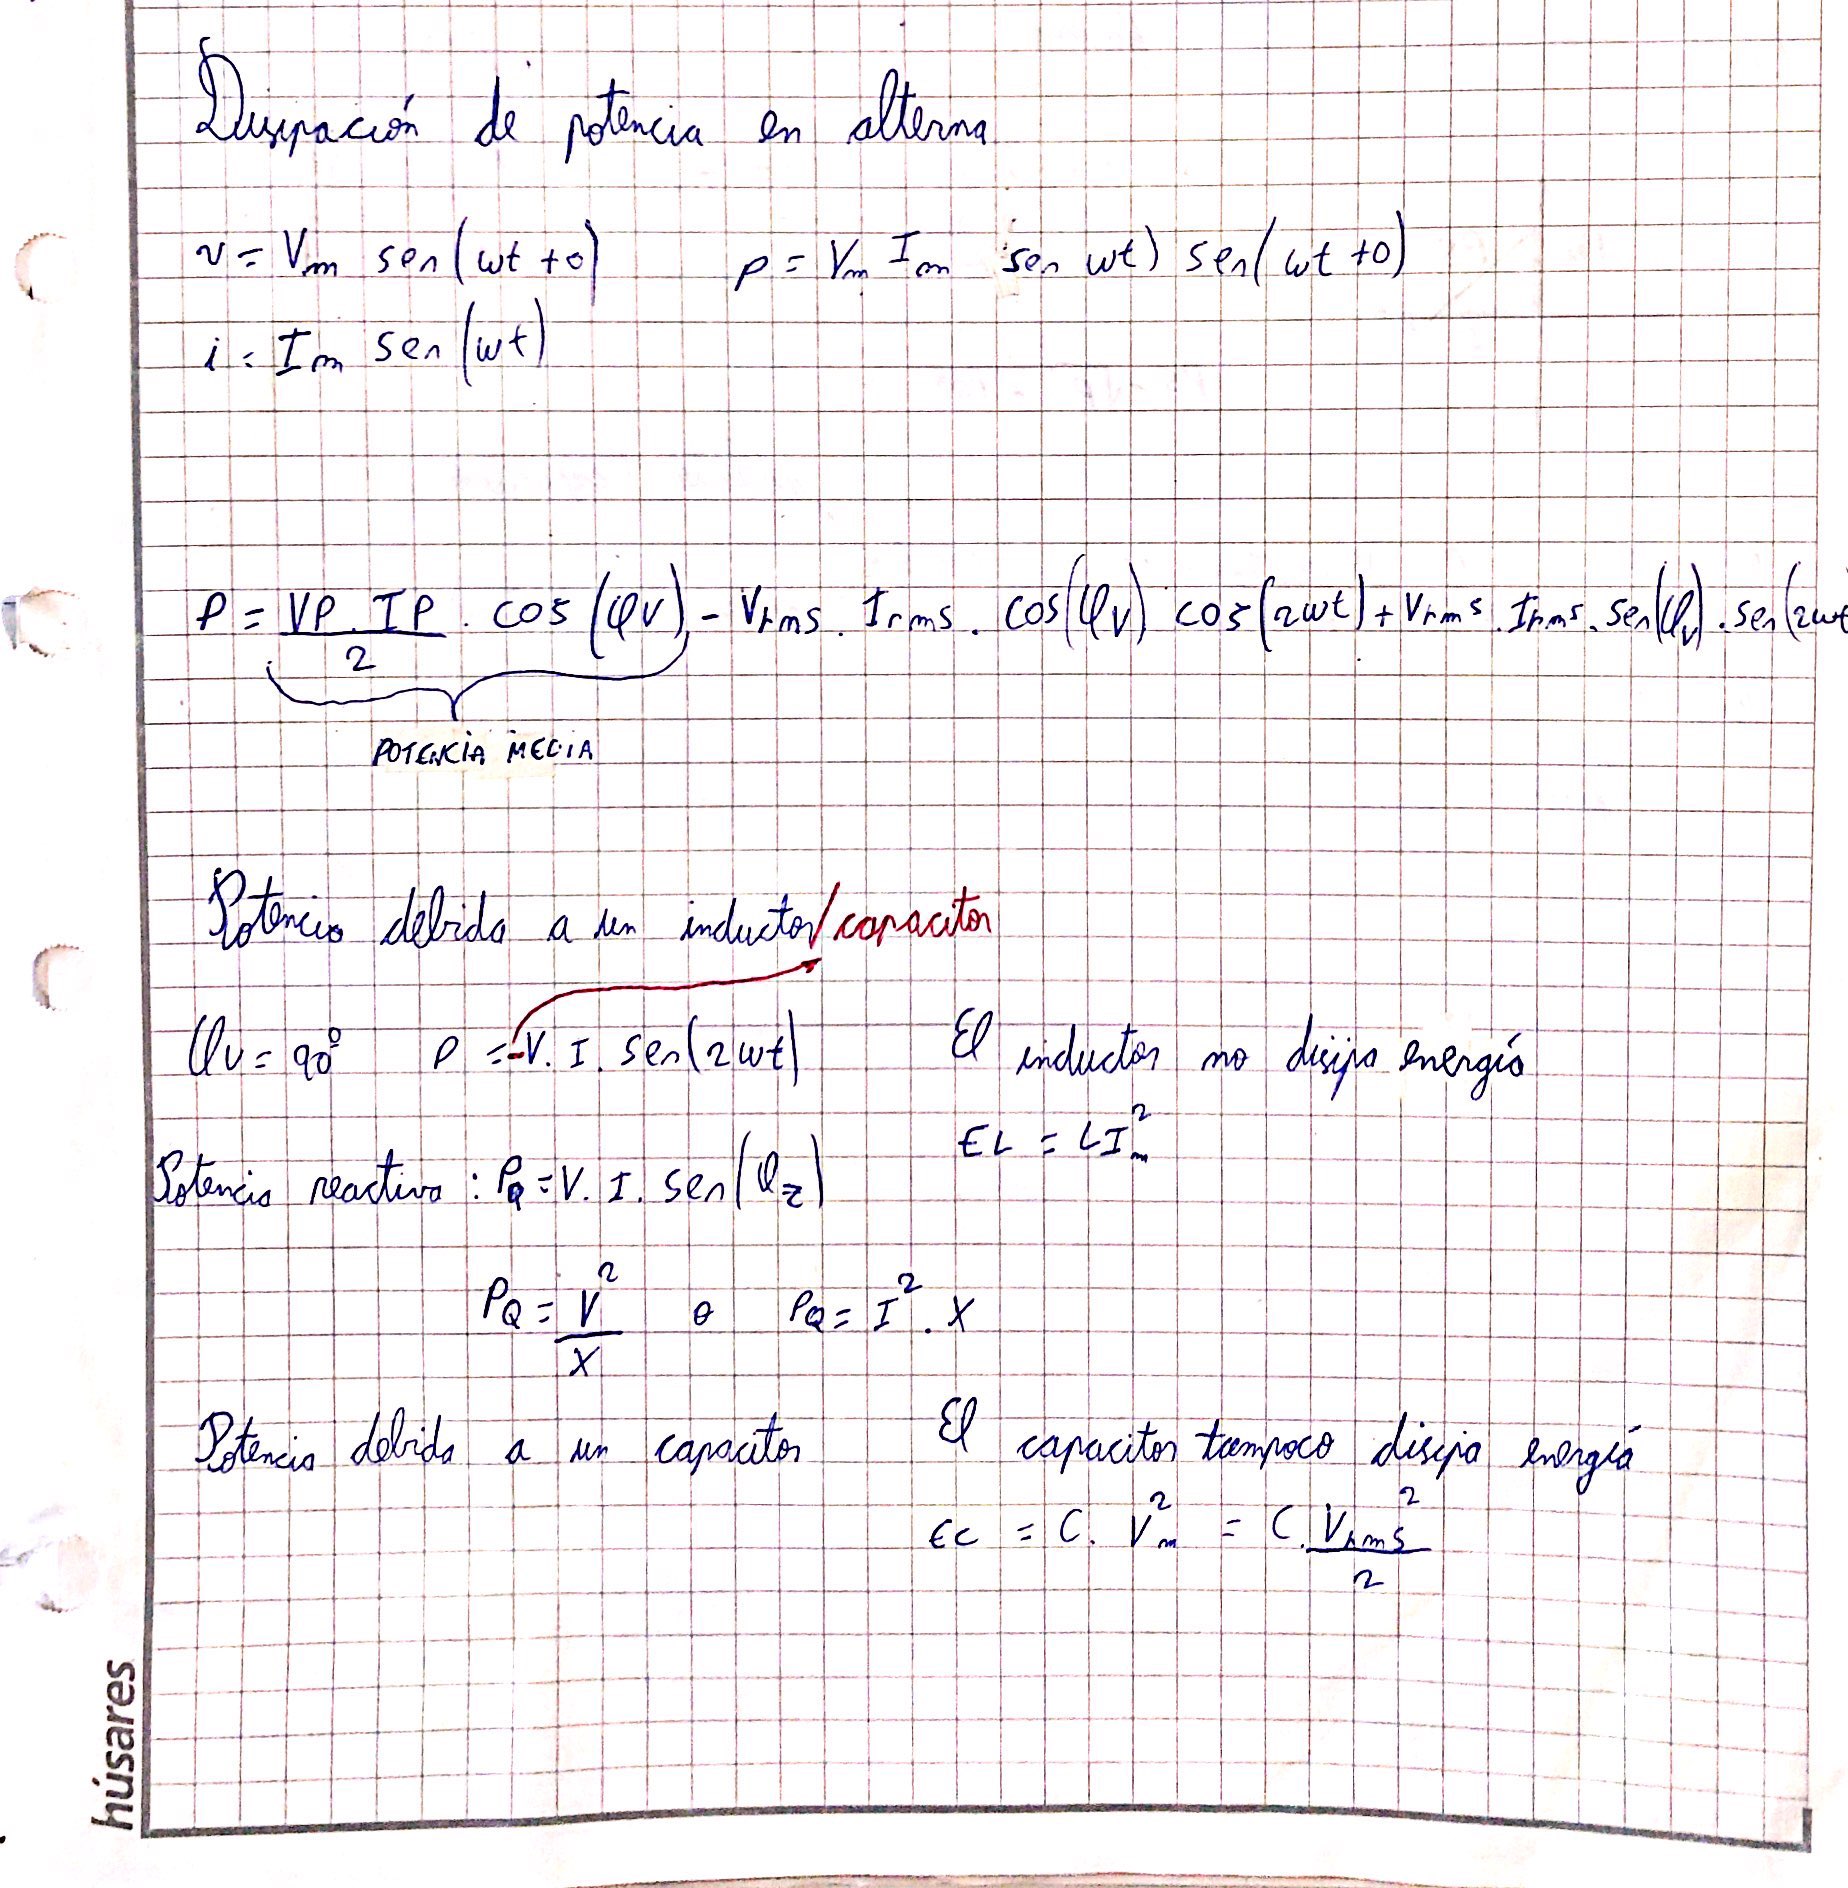 Disipación de potencia en alterna
v = Vm sen(wt +0) p = Vm Im sen wt) sen(wt +0)
i = Im sen(wt)
P = VP . IP / 2 . cos(φv) - Vrms . Irms . cos(φv) cos(2wt) + Vrms . Irms . sen(φv) . sen(2wt
POTENCIA MEDIA
Potencia debida a un inductor/capacitor
φv = 90º P = -V. I. sen(2wt) El inductor no disipa energía
EL = LIm²
Potencia reactiva : PQ = V. I. sen(φz)
PQ = V² / X o PQ = I² . X
Potencia debida a un capacitor El capacitor tampoco disipa energía
EC = C. Vm² = C. Vrms² / 2
húsares